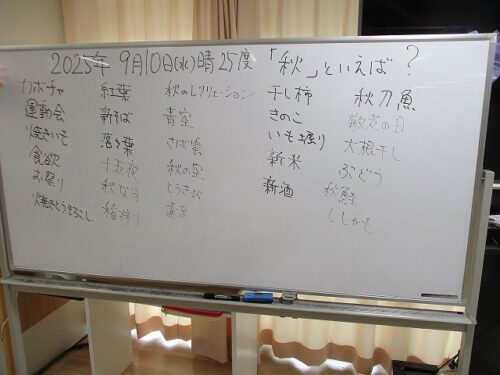 2025年 9月10日(水)晴 25度 「秋」といえば?
カボチャ
運動会
焼きいも
食欲
お祭り
焼きとうもろこし
紅葉
新そば
落ち葉
十五夜
秋なす
稲狩り
秋のレクリエーション
青空
さば雲
秋の空
干し柿
きのこ
いも堀り
新米
新酒
秋刀魚
敬老の日
大根干し
ぶどう
秋鮭
ししゃも